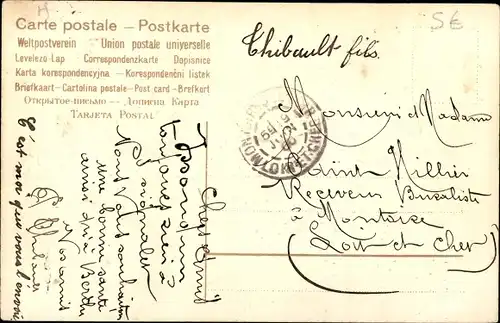 Carte postale – Postkarte
Weltpostverein – Union postale universelle
Levelezo-Lap – Correspondenzkarte – Dapisnice
Karta korespondencyjna – Korespondenční listek
Briefkaart – Cartolina postale – Post card – Brefkort
Открытое письмо – Дописна Карта
Tarjeta Postal
5€
Thibault fils.
Monsieur et Madame
Saint Hillier
Receveur Buraliste
à Montoire
(Loir et Cher)
Cher Ami
toujours rien à
signaler
Vont vous souhaiter
une bonne santé
ainsi qu'à Berthe
Vos amis
C'est moi que vous l'envoi